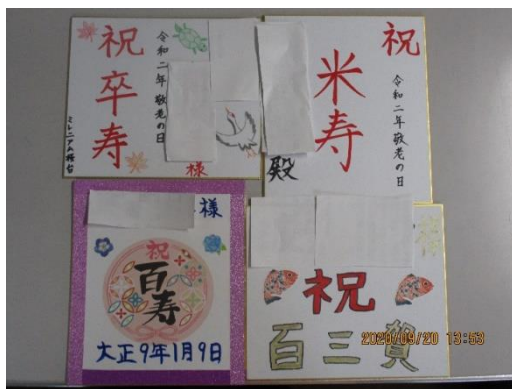 祝
卒寿
令和二年 敬老の日
様
ミレニアム桜台
祝
米寿
令和二年 敬老の日
殿
様
祝
百寿
大正9年1月9日
様
祝
百三賀
2020/09/20 13:53